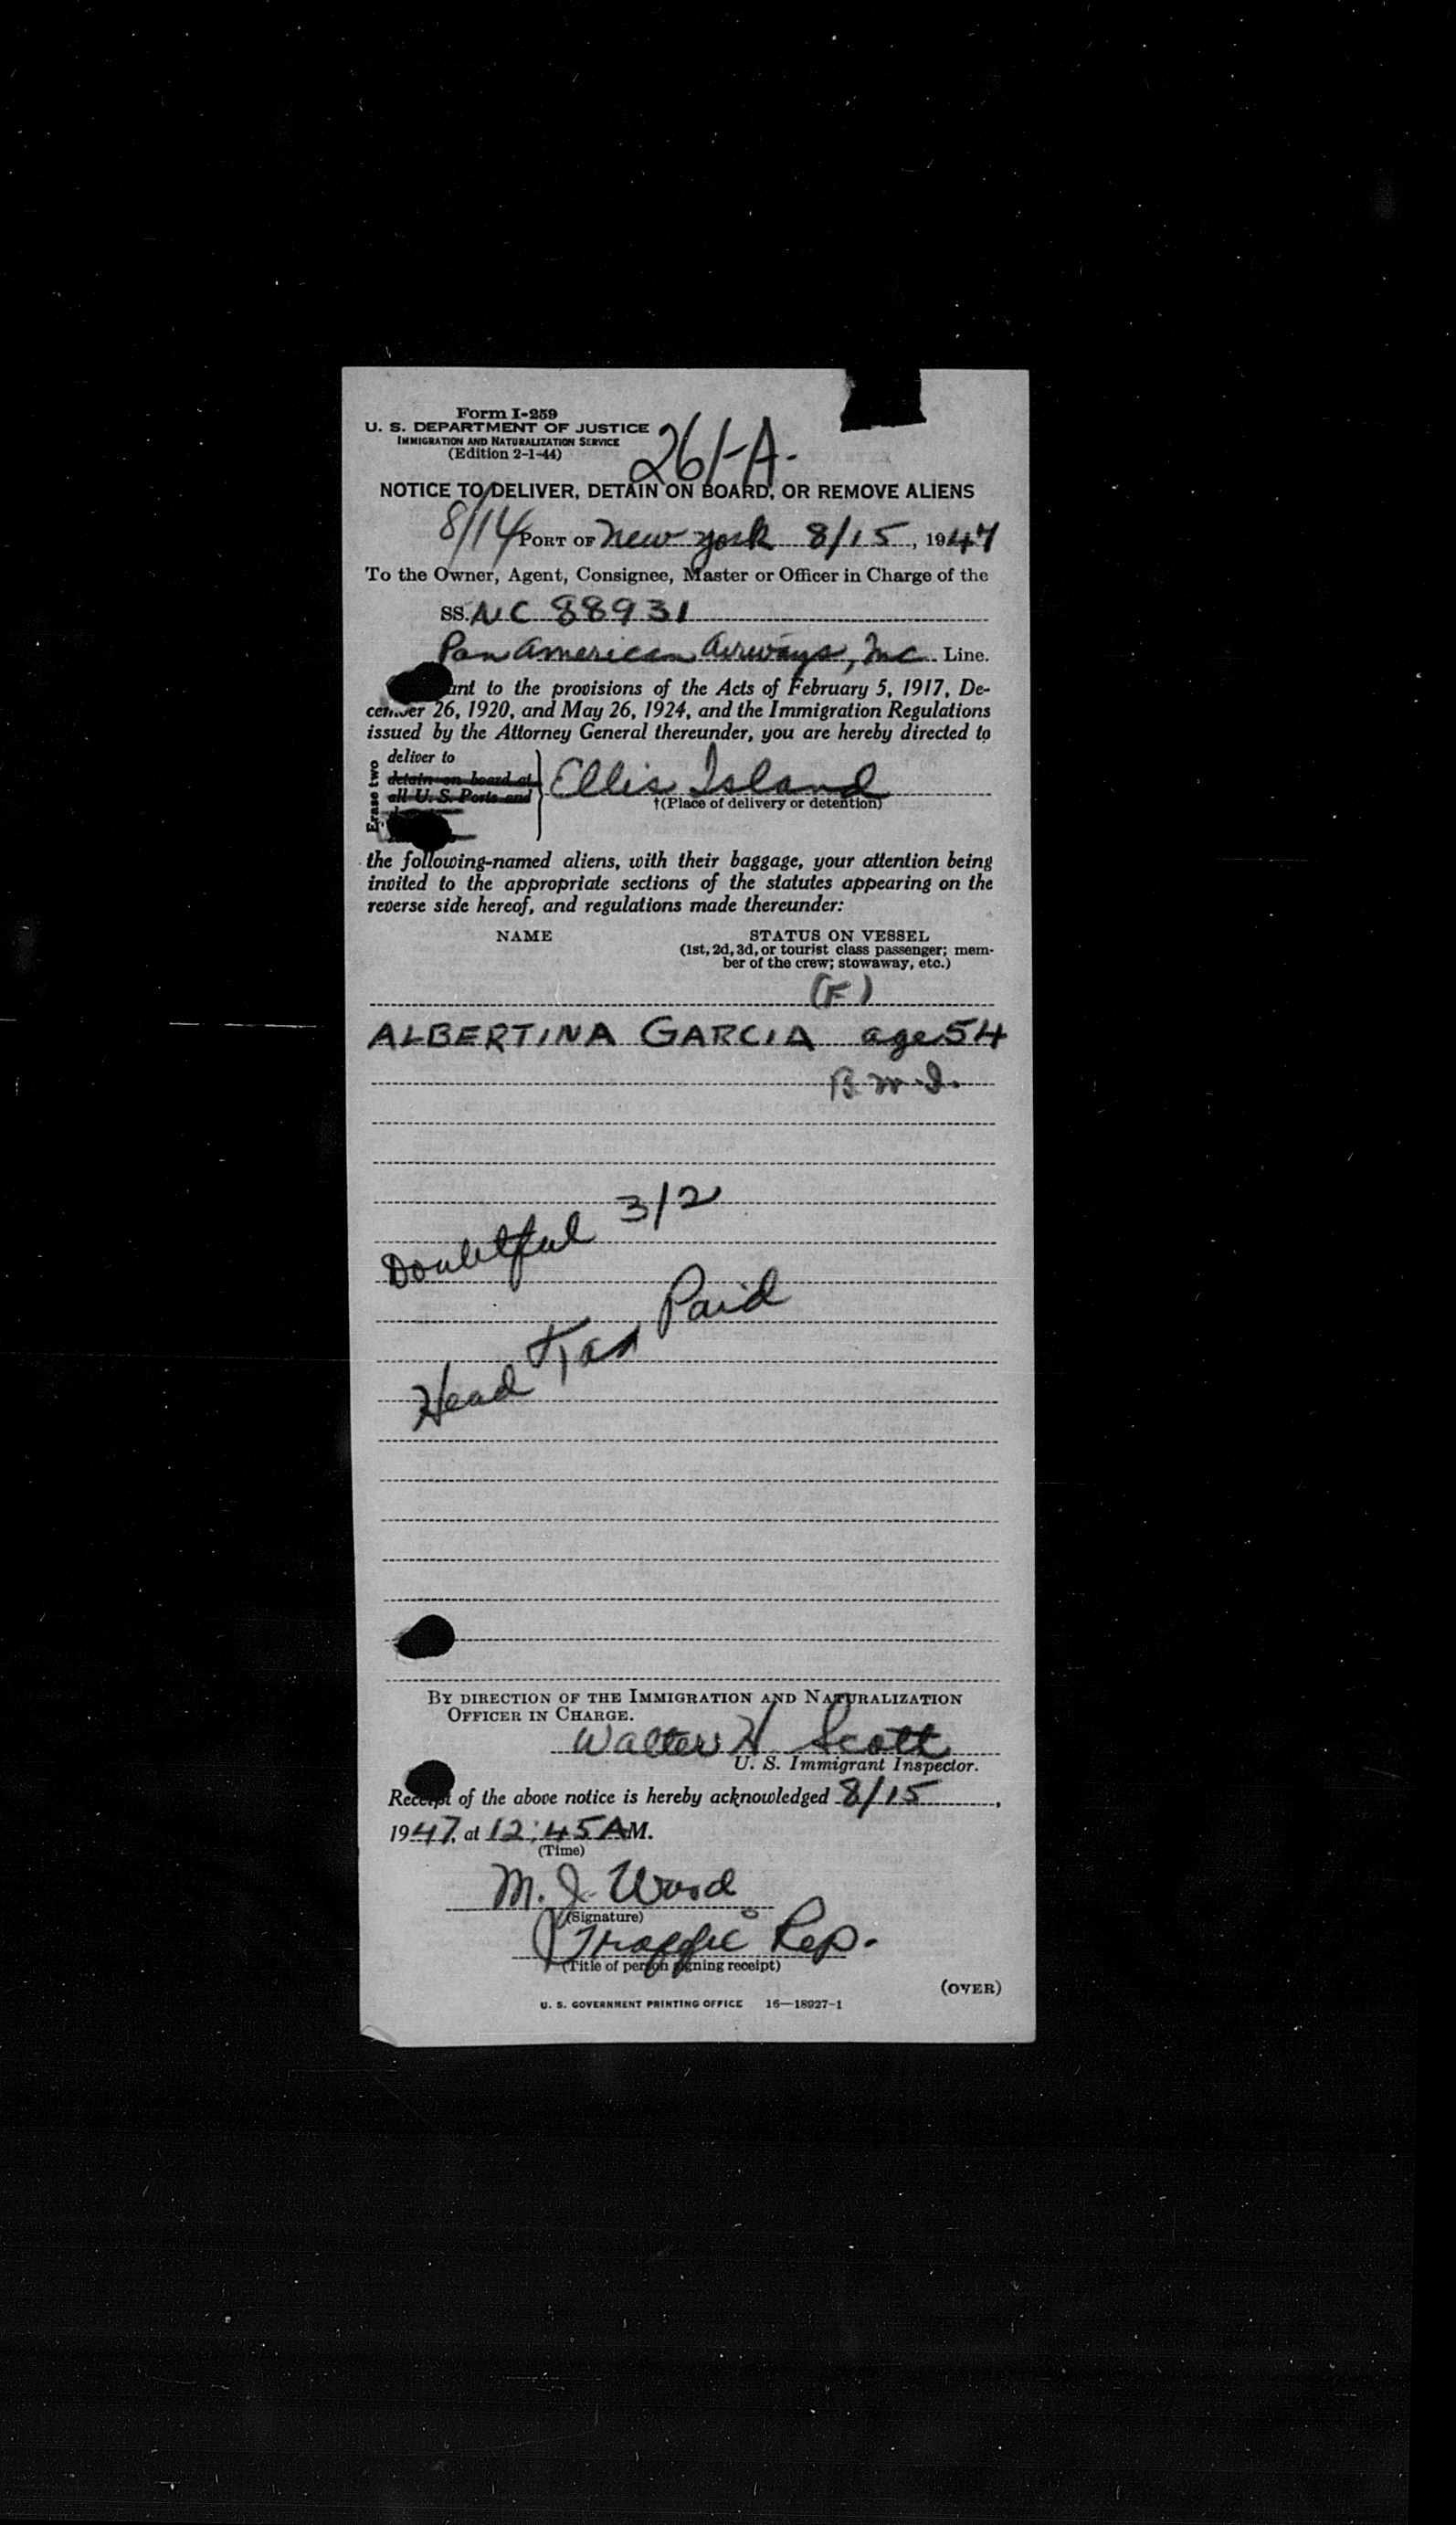 Form I-259
U. S. DEPARTMENT OF JUSTICE
IMMIGRATION AND NATURALIZATION SERVICE
(Edition 2-1-44)
261-A.
NOTICE TO DELIVER, DETAIN ON BOARD, OR REMOVE ALIENS
8/14
PORT OF New York 8/15, 1947
To the Owner, Agent, Consignee, Master or Officer in Charge of the
SS. NC 88931
Pan American Airways, Inc. Line.
ant to the provisions of the Acts of February 5, 1917, De-
cember 26, 1920, and May 26, 1924, and the Immigration Regulations
issued by the Attorney General thereunder, you are hereby directed to
Erase two
deliver to
detain on board at
all U. S. Ports and
Ellis Island
†(Place of delivery or detention)
the following-named aliens, with their baggage, your attention being
invited to the appropriate sections of the statutes appearing on the
reverse side hereof, and regulations made thereunder:
NAME STATUS ON VESSEL
(1st, 2d, 3d, or tourist class passenger; mem-
ber of the crew; stowaway, etc.)
(F)
ALBERTINA GARCIA age 54
Doubtful 3/2
Head Tax Paid
BY DIRECTION OF THE IMMIGRATION AND NATURALIZATION
OFFICER IN CHARGE.
Walter H Scott
U. S. Immigrant Inspector.
Receipt of the above notice is hereby acknowledged 8/15,
1947, at 12:45 AM.
(Time)
M. J. Ward
(Signature)
Traffic Rep.
(Title of person signing receipt)
(OVER)
U. S. GOVERNMENT PRINTING OFFICE 16—18927-1